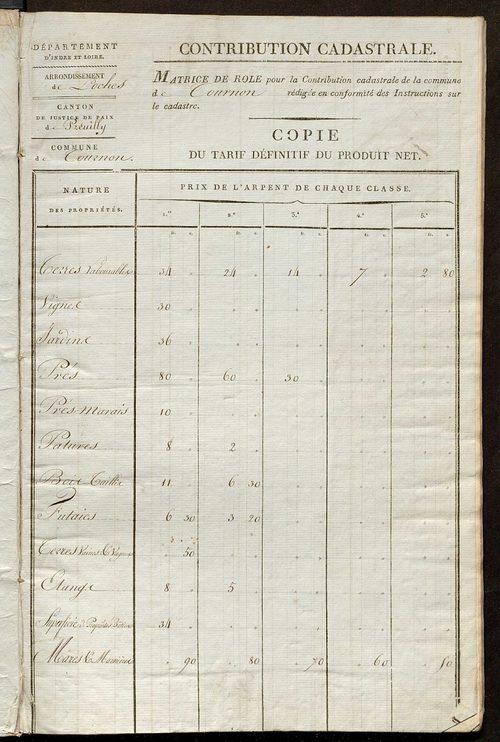 DÉPARTEMENT
D'INDRE ET LOIRE.
ARRONDISSEMENT
de Loches
CANTON
DE JUSTICE DE PAIX
de Preuilly
COMMUNE
de Tournon.
CONTRIBUTION CADASTRALE.
MATRICE DE ROLE pour la Contribution cadastrale de la commune
de Tournon rédigée en conformité des Instructions sur
le cadastre.
COPIE
DU TARIF DÉFINITIF DU PRODUIT NET.
NATURE
DES PROPRIÉTÉS.
PRIX DE L'ARPENT DE CHAQUE CLASSE.
1.re 2.e 3.e 4.e 5.e
fr. c. fr. c. fr. c. fr. c. fr. c.
Terres Labourables 34 . 24 . 14 . 7 . 2 80
Vignes 30
Jardins 36
Prés 80 60 30
Prés Marais 10
Patures 8 2
Bois Taillis 11 6 30
Futaies 6 30 3 20
Terres Vaines & Vagues 50
Etangs 8 5
Superficie des Propriétés Bâties 34
Mares & 90 80 70 60 50